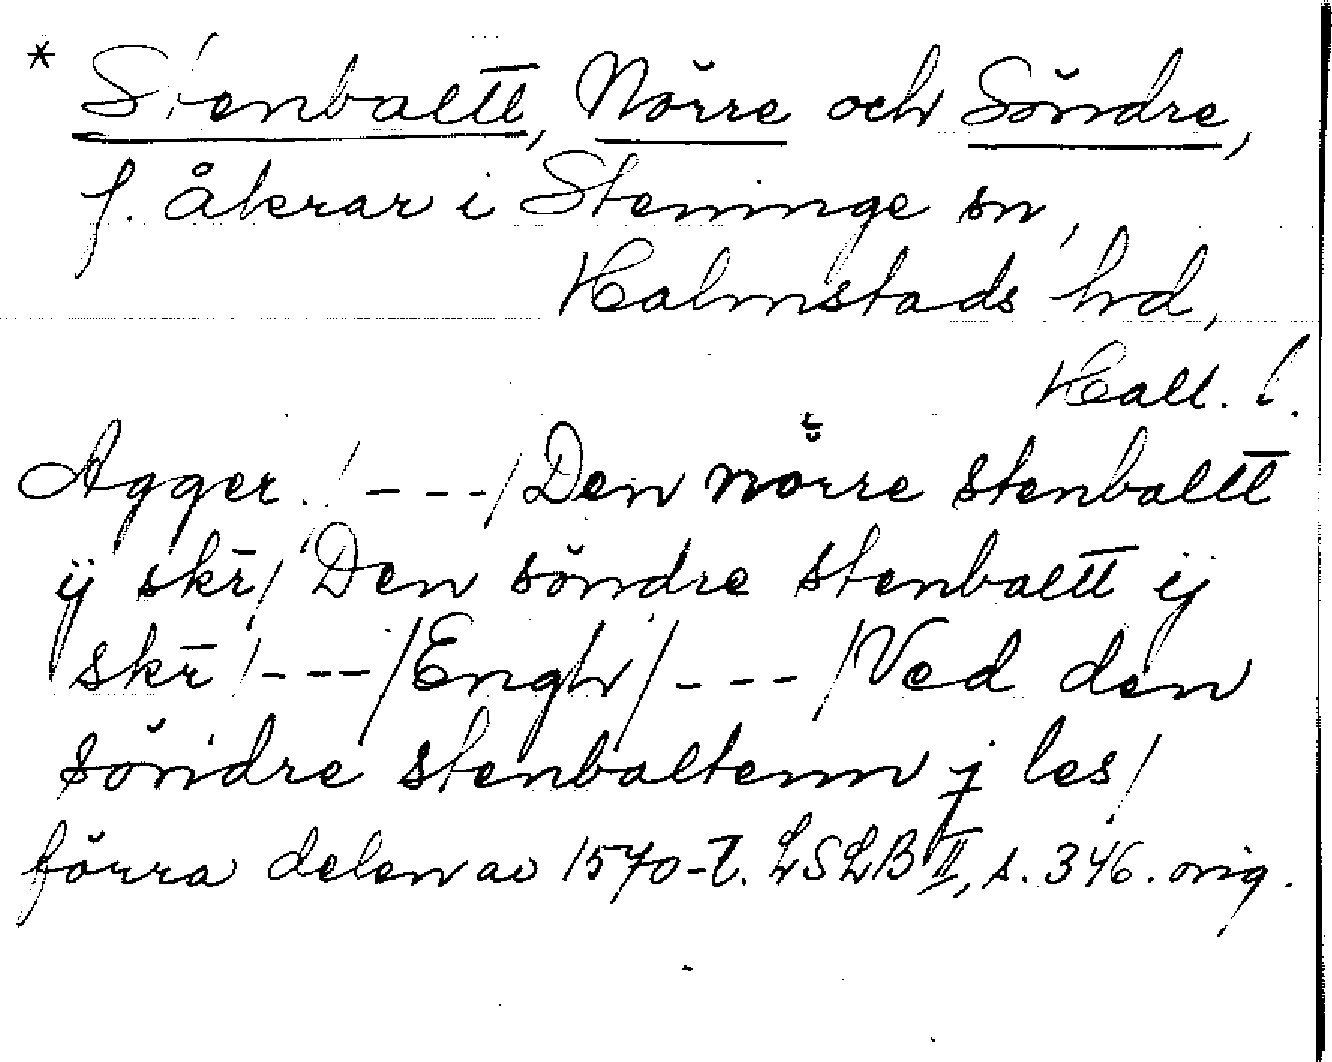 * Stenbaltt, Nörre och Söndre,
f. åkrar i Steninge sn,
Halmstads hd,
Hall. l.
Agger / - - - / Den nörre stenbaltt
ij skr̄ / Den söndre stenbaltt ij
skr̄ / - - - / Engh / - - - / Ved den
söndre stenbaltenn j les /
förra delen av 1570-t. LSLB II, s. 346. orig.